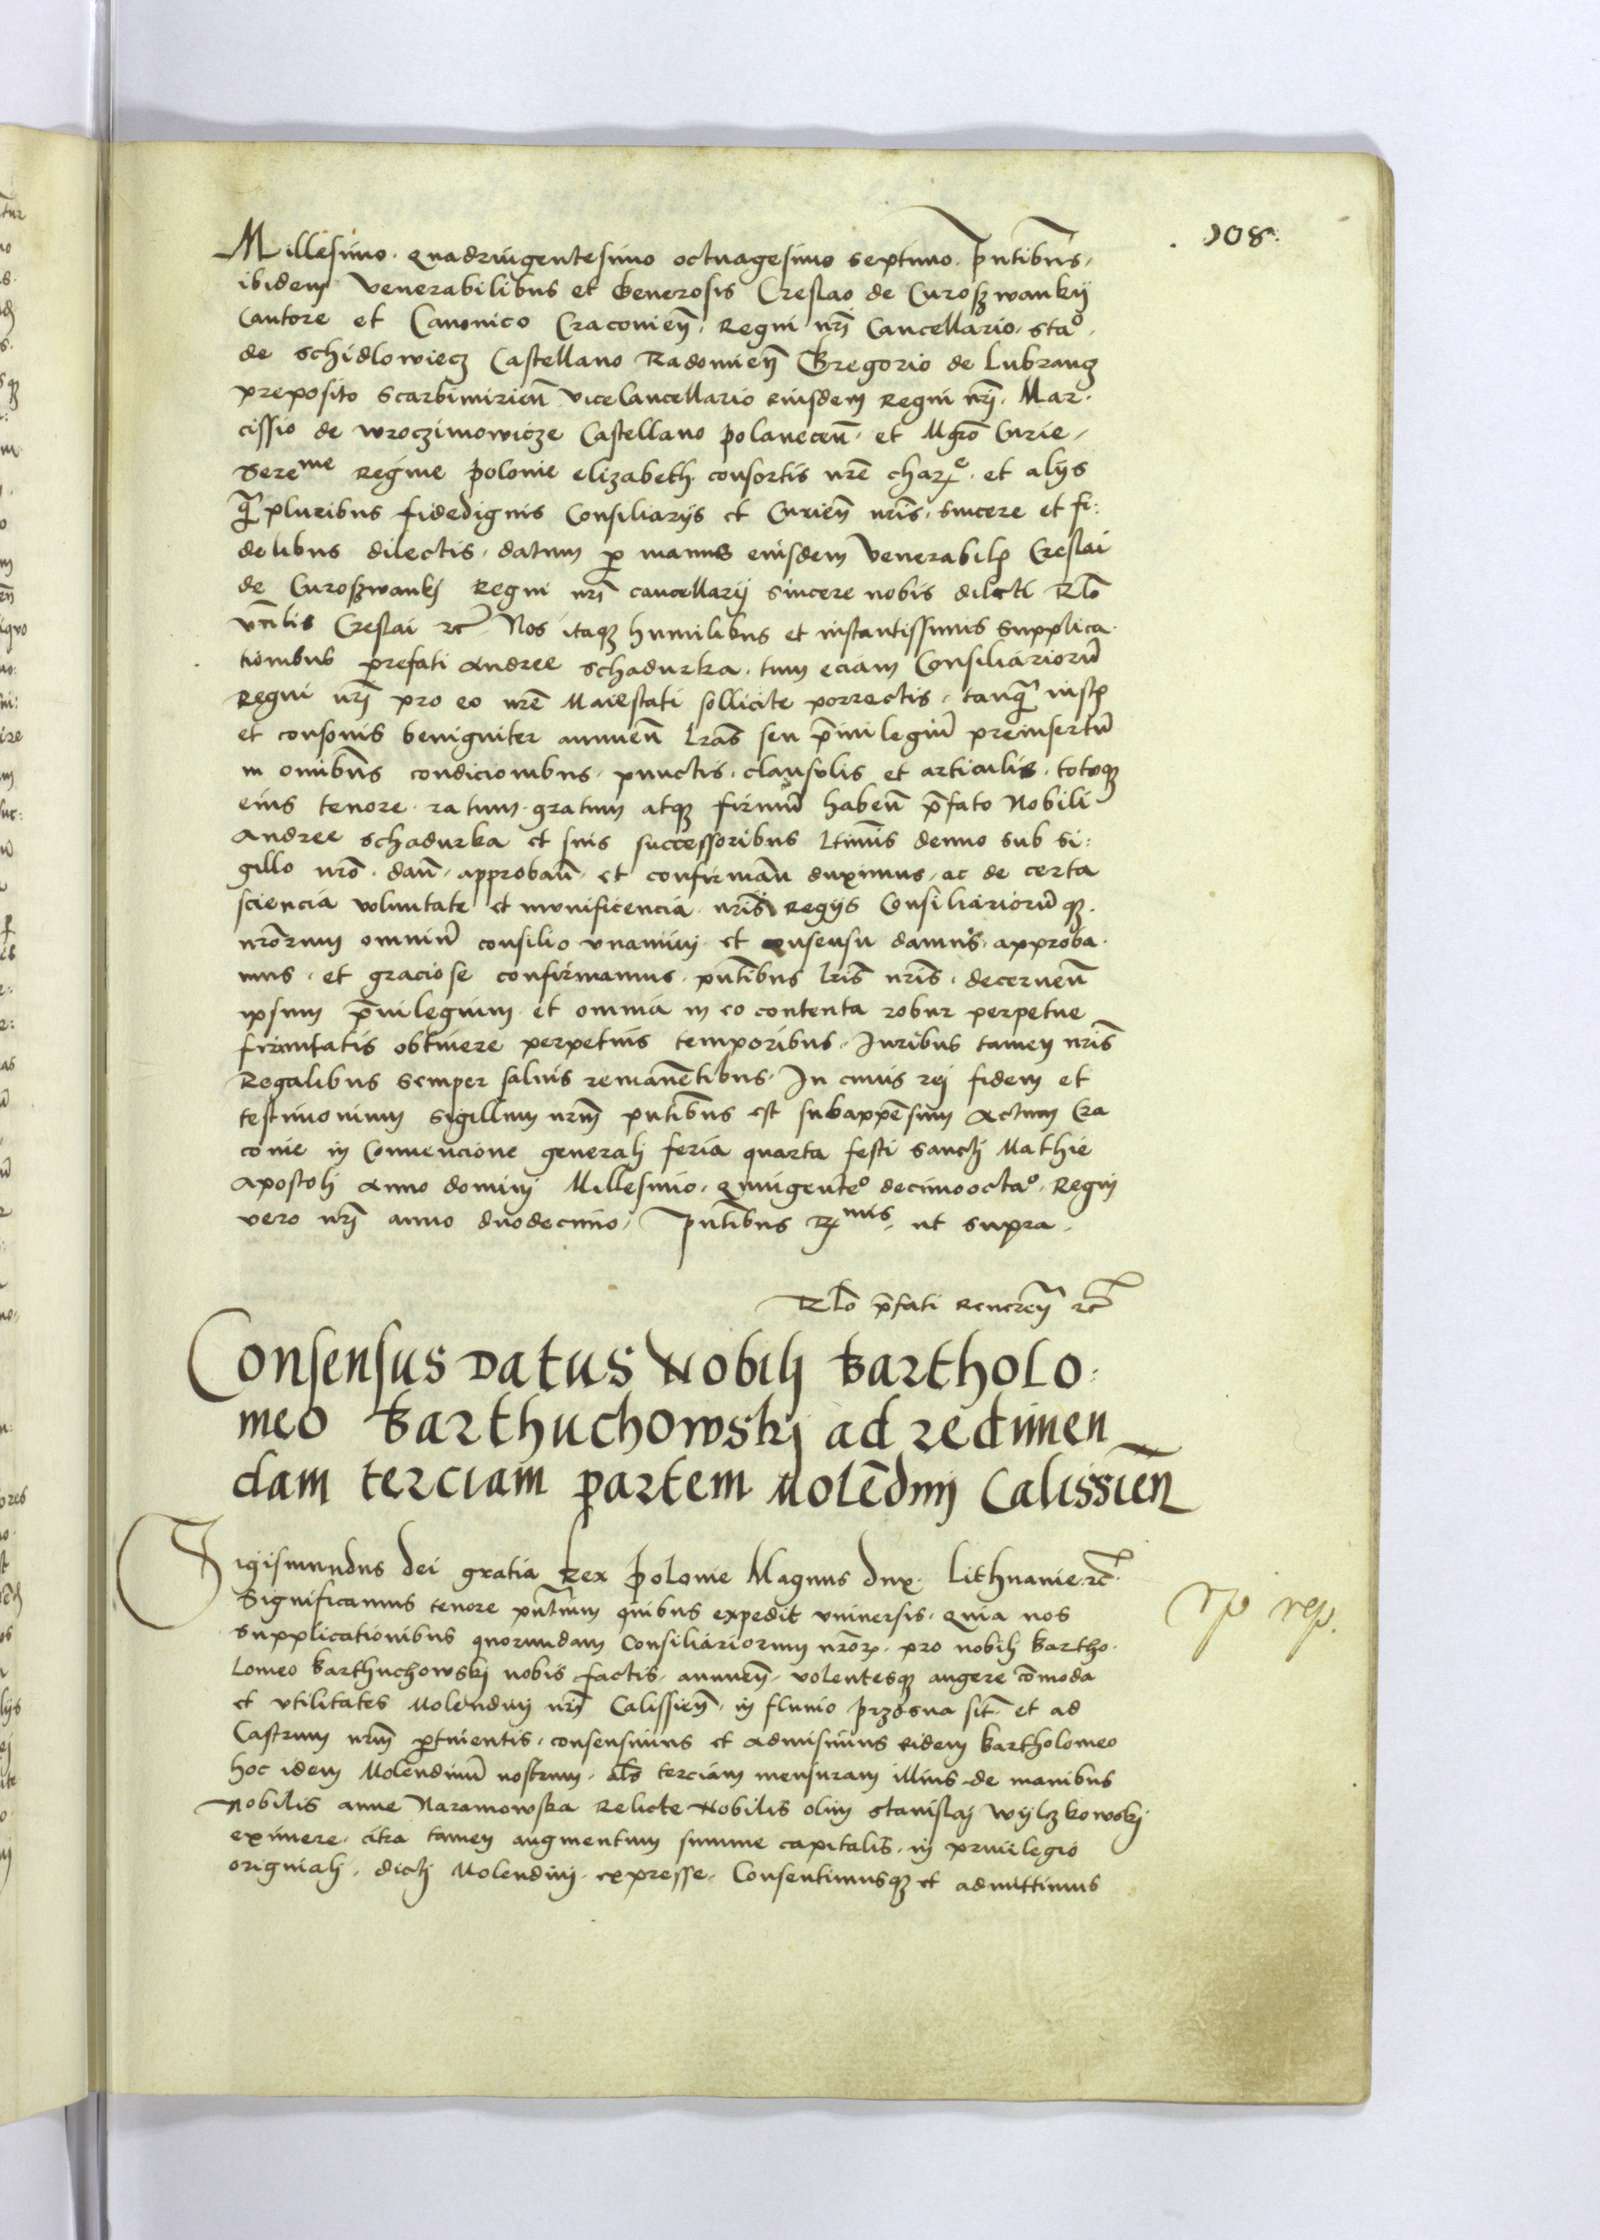 108.
Millesimo. quadringentesimo octuagesimo septimo. pntibus,
ibidem venerabilibus et Generosis Creslao de Curoszwankij
Cantore et Canonico Cracovien̄, Regni nr̄i Cancellario. Sta°.
de Schidlowiecz Castellano Radomien̄ Gregorio de Lubrancz
preposito Scarbimirien̄ vicecancellario eiusdem Regni nr̄i. Mar-
cissio de Wroczimowicze Castellano polanecen̄. et Mgrō Curie,
Sereme Regine polonie elizabeth. consortis nrē char. et alijs
qpluribus fidedignis Consiliarijs et Curien̄ nr̄is, sincere et fi:
delibus dilectis. datum p manus eiusdem venerabilis Creslai
de Curoszwankj Regni nr̄i cancellarij sincere nobis dilecti Rlō
vn̄lis Creslai rc̄ Nos itaqz humilibus et instantissimis supplica-
tionibus prefati Andree Schadurka. tum eciam Consiliariorū
Regni nr̄i pro eo nrē Maiestati sollicite porrectis, tanq̄ iustis
et consonis benigniter annuen̄ lrās seu p̄uilegiū preinsertū
in omībus condicionibus. punctis. clausolis et articulis. totoqz
eius tenore. ratum. gratum atqz firmū haben̄ p̄fato Nobili
Andree Schadurka et suis successoribus ltimis denuo sub si:
gillo nrō. dan̄. approban̄. et confirman̄ duximus, ac de certa
sciencia voluntate et munificencia. nr̄is Regijs Consiliariorū qz.
nrōrum omniū consilio vnanimi et consensu damus. approba-
mus. et graciose confirmamus. pn̄tibus lr̄is nr̄is. decernen̄
ipsum p̄uilegium et omnia in eo contenta robur perpetue
firmitatis obtinere perpetuis temporibus, Iuribus tamen nr̄is
Regalibus semper saluis remanētibus. In cuius rei fidem et
testimonium Sigillum nrm̄ pn̄tibus est subappēsum Actum Cra
covie in Convencione generalj feria quarta festi Sanctj Mathie
Apostolj Anno dominj Millesimo. quingente° decimoocta°. Regnj
vero nr̄i anno duodecimo, Pn̄tibus R mis ut supra.
Rlō p̄fati Reueren̄ rc̄
Consensus Datus Nobilj Bartholo:
meo Barthuchowskj ad redimen
dam terciam partem Molēdinj Calissien̄
Sigismundus dei gratia Rex Polonie Magnus dux Lithuanie. rc̄.
Significamus tenore pn̄tium quibus expedit vniuersis. quia nos
supplicationibus quorundam Consiliariorum nrōr. pro nobilj Bartho-
lomeo Barthuchowskj nobis factis, annuen̄, volentesqz augere cōmoda
et vtilitates Molendinj nr̄i Calissien̄, in fluuio Przosna sit̄. et ad
Castrum nrm̄ ptinentis, consensimus et admisimus eidem Bartholomeo
hoc idem Molendinū nostrum, als̄ terciam mensuram illius de manibus
nobilis anne Naramowska Relicte Nobilis olim Stanislaj Wylczkowskj
eximere, citra tamen augmentum summe capitalis, in priuilegio
originalj. dictj Molendinj. expresse. Consentimusqz et admittimus
rp rep.